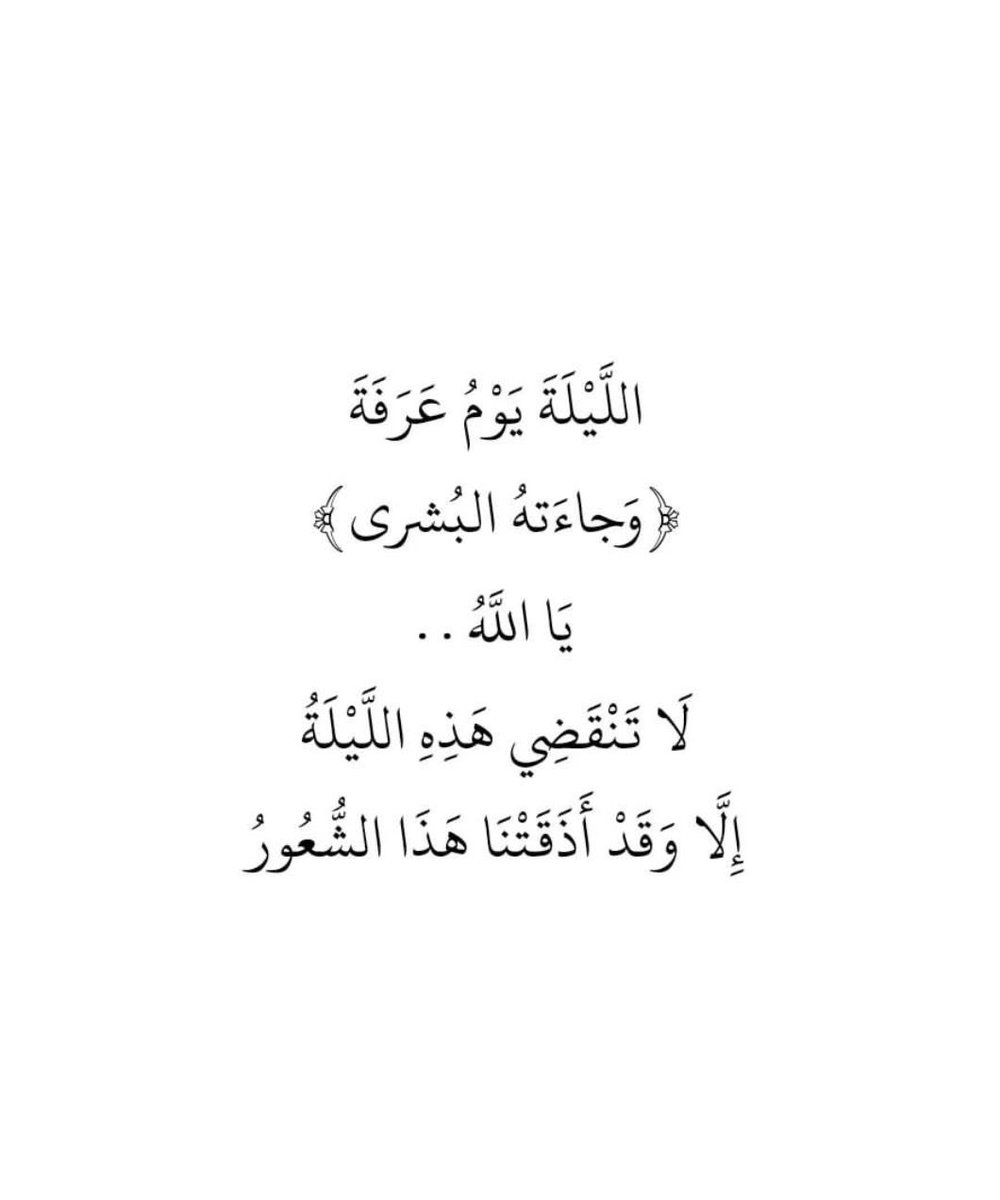 اللَّيْلَةَ يَوْمُ عَرَفَةَ
﴿وَجاءَتهُ البُشرى﴾
يَا اللَّهُ ..
لَا تَنْقَضِي هَذِهِ اللَّيْلَةُ
إِلَّا وَقَدْ أَذَقَتْنَا هَذَا الشُّعُورُ